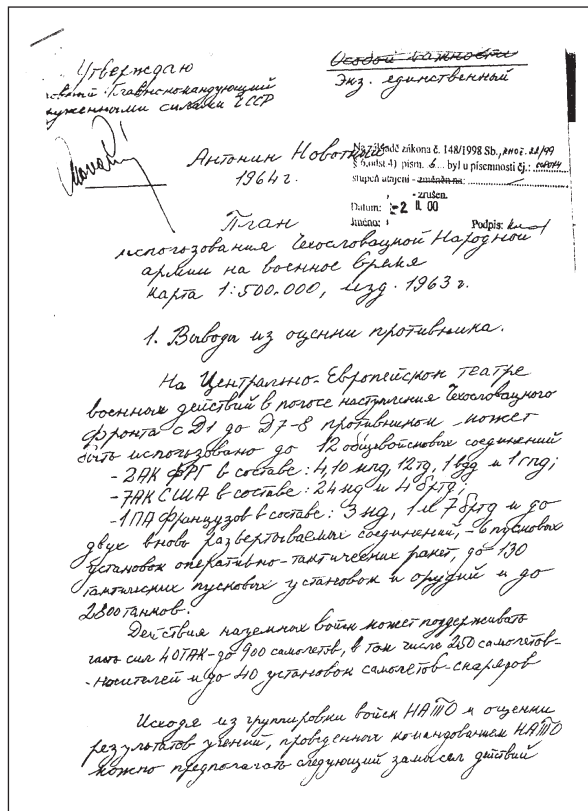 Особой важности
Экз. единственный
Утверждаю
Главнокомандующий
силами ЧССР
Антонин Новотный
1964 г.
Na základě zákona č. 148/1998 Sb.,
písm. б... byl u písemnosti čj.:
stupeň utajení - změněn na:
- zrušen.
Datum: -2 II. 00
Jméno: Podpis:
План
использования Чехословацкой Народной
армии на военное время
карта 1:500.000, изд. 1963 г.
1. Выводы из оценки противника.
На Центрально-Европейском театре
военных действий в полосе наступления Чехословацкого
фронта с Д1 до Д7-8 противником может
быть использовано до 12 общевойсковых соединений
- 2АК ФРГ в составе: 4,10 мпд, 12тд, 1 вдд и 1 гпд;
- 7АК США в составе: 24 мд и 4 бртд;
- 1ПА Французов в составе: 3 мд, 1 и 7 бртд и до
двух вновь развертываемых соединений, - 6 пусковых
установок оперативно-тактических ракет, до 130
тактических пусковых установок и орудий и до
2800 танков.
Действия наземных войск может поддерживать
часть сил 4 ОТАК - до 900 самолетов, в том числе 250 самолетов-
-носителей и до 40 установок самолетов-снарядов
Исходя из группировки войск НАТО и оценки
результатов учений, проведенных командованием НАТО
можно предполагать следующий замысел действий